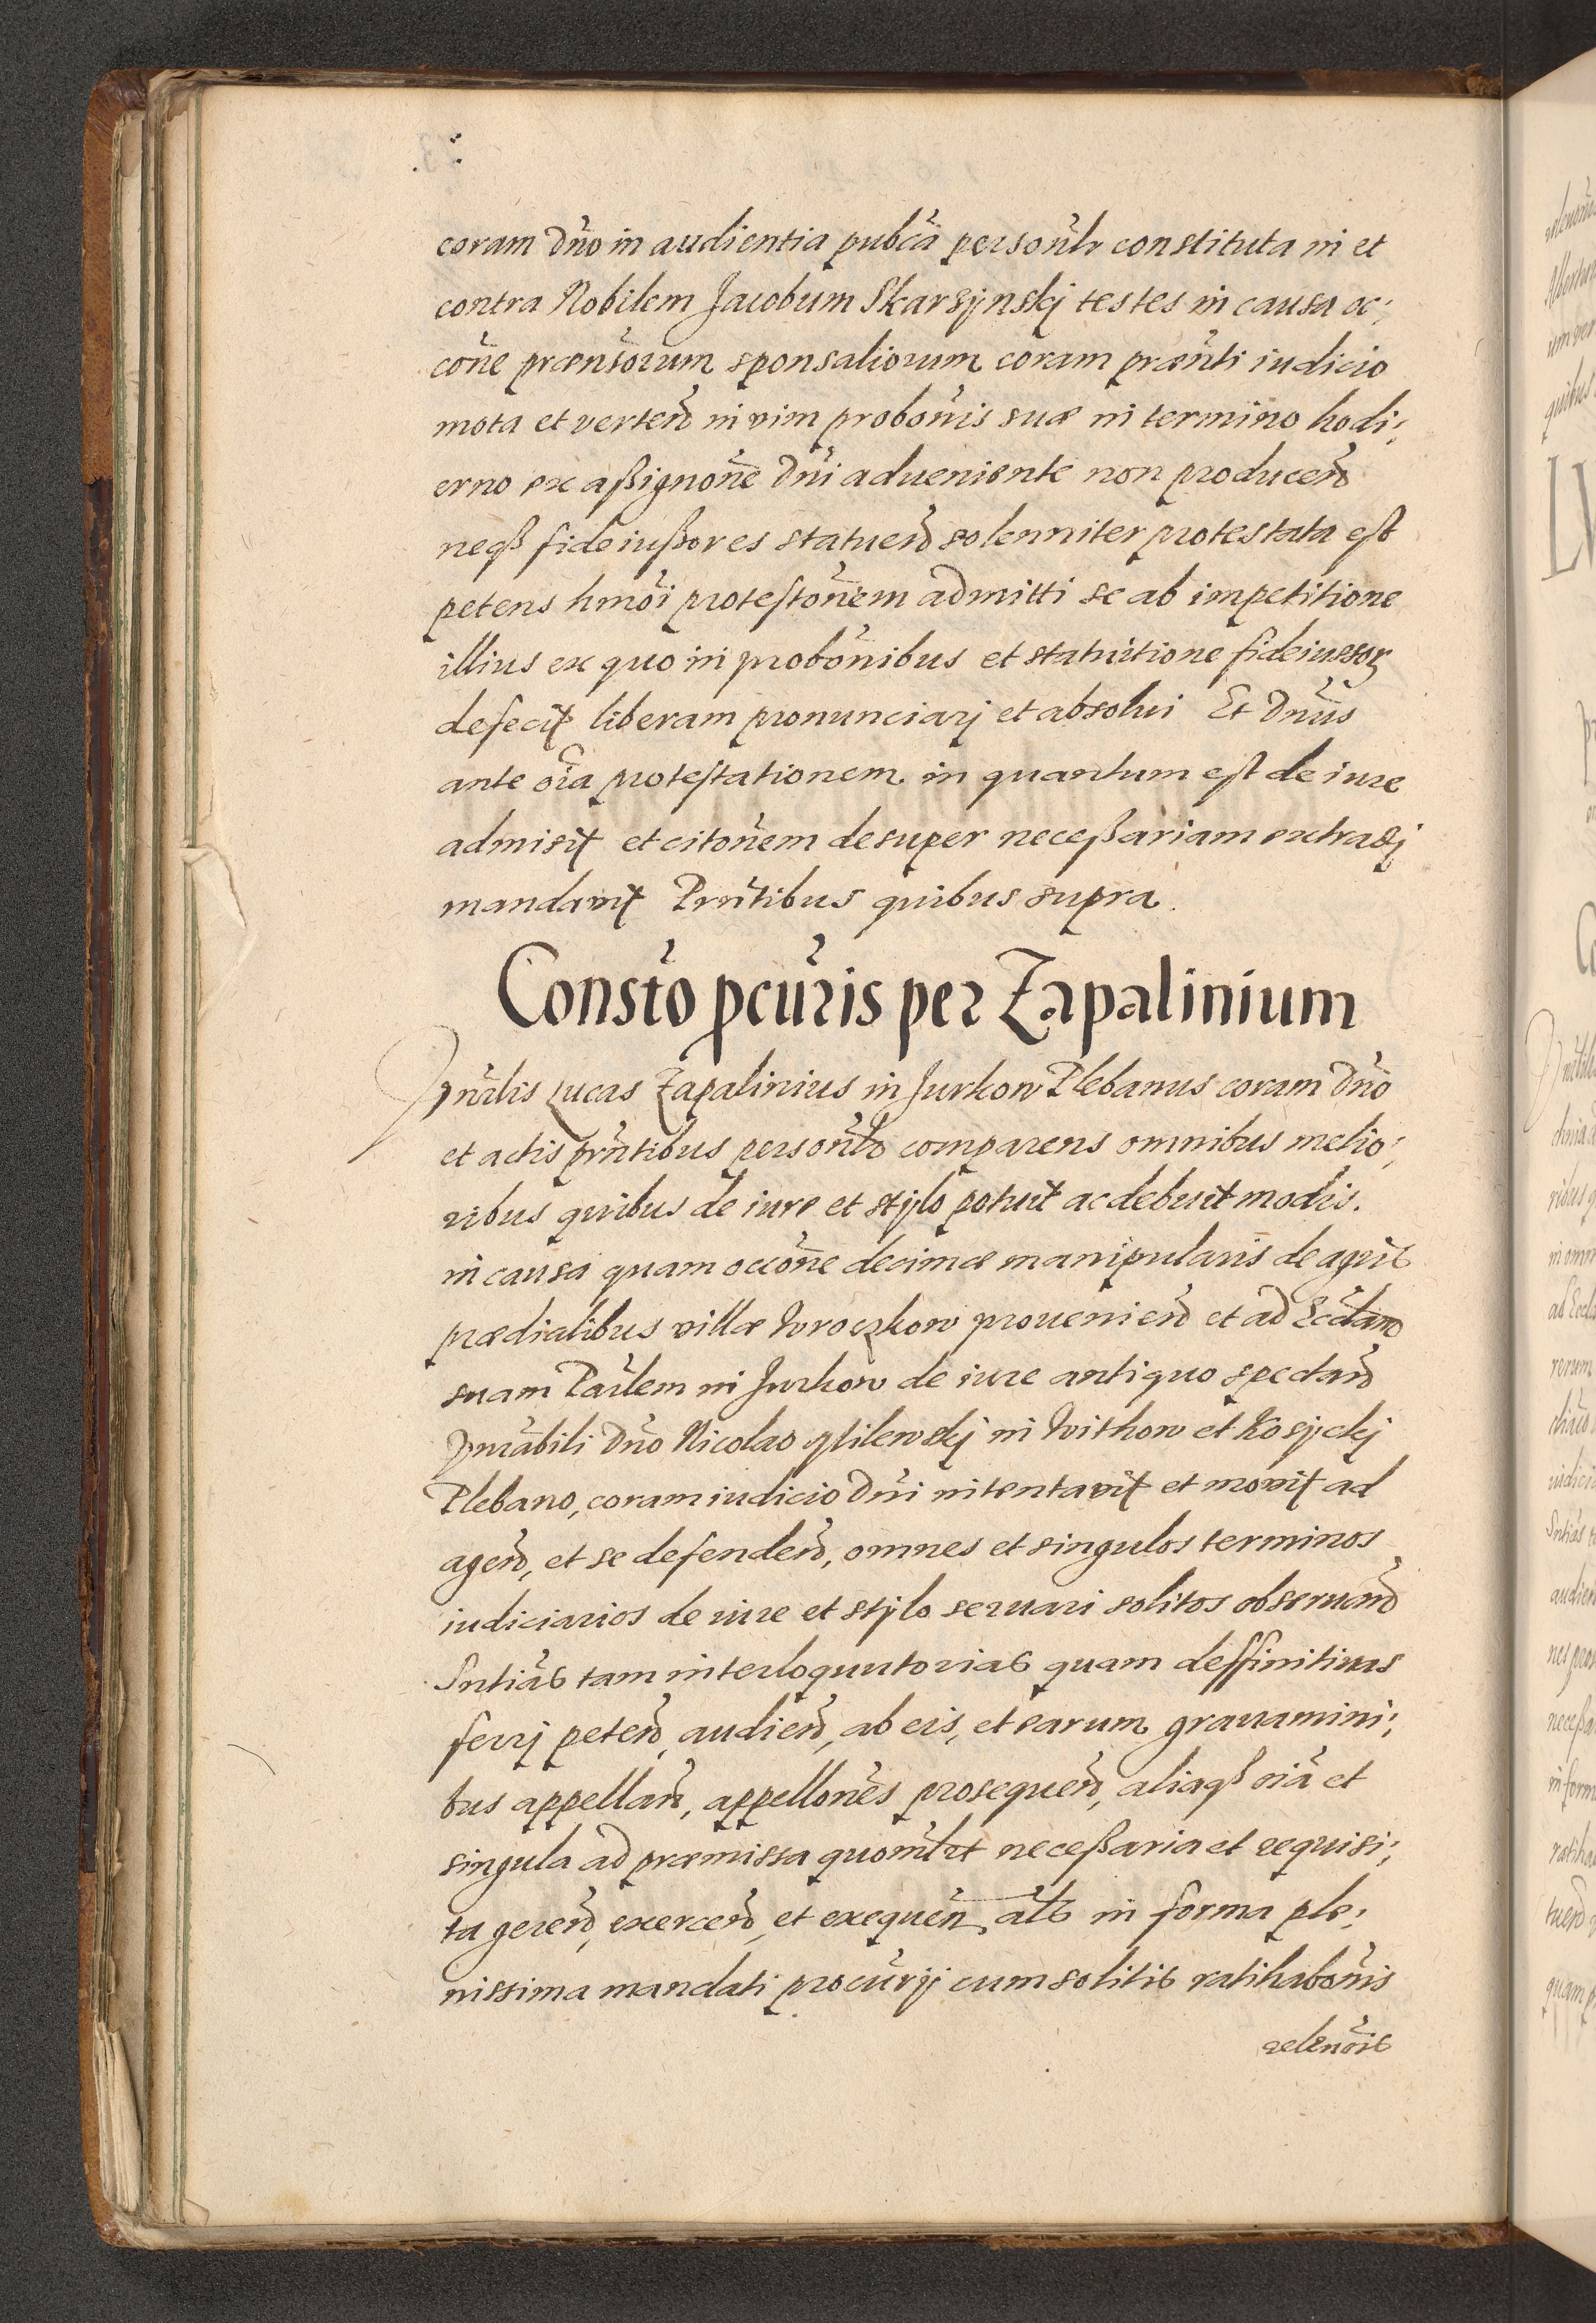 coram Dno in audientia publca personlr constituta in et
contra Nobilem Jacobum Skarzÿnskj testes in causa oc:
cone prænsorum sponsaliorum coram prænti iudicio
mota et verten in vim probonis suæ in termino hodi:
erno ex aßignone Dni adueniente non producen
neqß fideiußores statuen solenniter protestata est
petens hmoi protestonem admitti se ab impetitione
illius ex quo in probonibus et statuitione fideiussor
defecit liberam pronunciarj et absolui Et Dnus
ante oia protestationem in quantum est de iure
admisit et citonem desuper neceßariam extradj
mandavit Prntibus quibus supra.
Consto pcuris per Zapalinium
Vnrlis Lucas Zapalinius in Jurkow Plebanus coram Dno
et actis prntibus personlr comparens omnibus melio:
ribus quibus de iure et stÿlo potuit ac debuit modis.
in causa quam occone decimæ manipularis de agris
prædialibus villæ Wroczkow prouenien et ad Eccliam
suam Parlem in Jurkow de iure antiquo spectan
Vnrabili Dno Nicolao Milewskj in Withow et Kosÿckj
Plebano, coram iudicio Dni intentavit et movit ad
agen, et se defenden, omnes et singulos terminos
iudiciarios de iure et stÿlo seruari solitos obseruan
Sntias tam interloquutorias quam deffinitiuas
ferrj peten, audien, ab eis, et earum grauamini:
bus appellan, appellones prosequen, aliaqß oia et
singula ad præmissa quomlt neceßaria et requisi:
ta geren, exercen, et exequen, als in forma ple:
nissima mandati procurÿ cum solitis ratihabonis
relenois